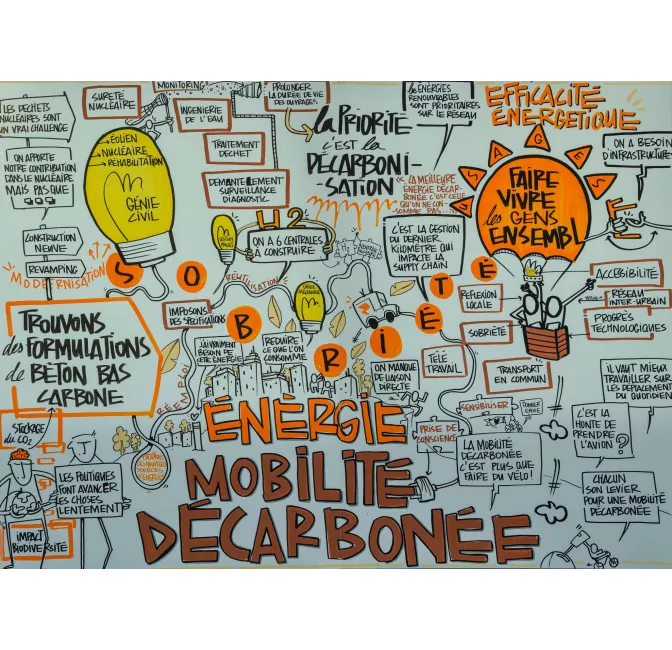 MONITORING
SURETÉ
NUCLÉAIRE
LES DECHETS
NUCLÉAIRES SONT
UN VRAI CHALLENGE
INGENIERIE
DE L'EAU
PROLONGER
LA DURÉE DE VIE
DES OUVRAGES
LES ÉNERGIES
RENOUVELABLES
SONT PRIORITAIRES
SUR LE RÉSEAU
EFFICACITÉ
ENERGETIQUE
USAGES
ON A BESOIN
D'INFRASTRUCTURE
ON APPORTE
NOTRE CONTRIBUTION
DANS LE NUCLÉAIRE
MAIS PAS QUE
ÉOLIEN
NUCLÉAIRE
RÉHABILITATION
GÉNIE
CIVIL
TRAITEMENT
DÉCHET
DEMANTELEMENT
SURVEILLANCE
DIAGNOSTIC
la PRIORITÉ
C'EST la
DÉCARBONI-
SATION
« LA MEILLEURE
ÉNERGIE DÉCAR-
BONÉE C'EST CELLE
QU'ON NE CON-
SOMME PAS
FAIRE
VIVRE
les GENS
ENSEMBL
E
CONSTRUCTION
NEUVE
REVAMPING
MODERNISATION
H2
ON A 6 CENTRALES
À CONSTRUIRE
C'EST LA GESTION
DU DERNIER
KILOMÈTRE QUI
IMPACTE LA
SUPPLY CHAIN
ACCESSIBILITÉ
RÉSEAU
INTER-URBAIN
PROGRÈS
TECHNOLOGIQUES
RÉUTILISE
SOBRIÉTÉ
REFLEXION
LOCALE
SOBRIÉTÉ
TROUVONS
des FORMULATIONS
de BÉTON BAS
CARBONE
IMPOSONS
DES SPECIFICATIONS
J'AI VRAIMENT
BESOIN DE
CETTE ÉNERGIE
REDUIRE
CE QUE L'ON
CONSOMME
ON MANQUE
DE LIAISON
DIRECTE
TÉLÉ
TRAVAIL
TRANSPORT
EN COMMUN
IL VAUT MIEUX
TRAVAILLER SUR
LES DEPLACEMENT
DU QUOTIDIEN
RÉEMPLOI
STOCKAGE
DU CO2
ÉNERGIE
SENSIBILISER
DONNER
ENVIE
PRISE DE
CONSCIENCE
C'EST LA
HONTE DE
PRENDRE
L'AVION ?
LES POLITIQUES
FONT AVANCER
LES CHOSES
LENTEMENT
MOBILITÉ
DÉCARBONÉE
LA MOBILITÉ
DÉCARBONÉE
C'EST PLUS QUE
FAIRE DU VÉLO !
CHACUN
SON LEVIER
POUR UNE MOBILITÉ
DÉCARBONÉE
IMPACT
BIODIVERSITÉ